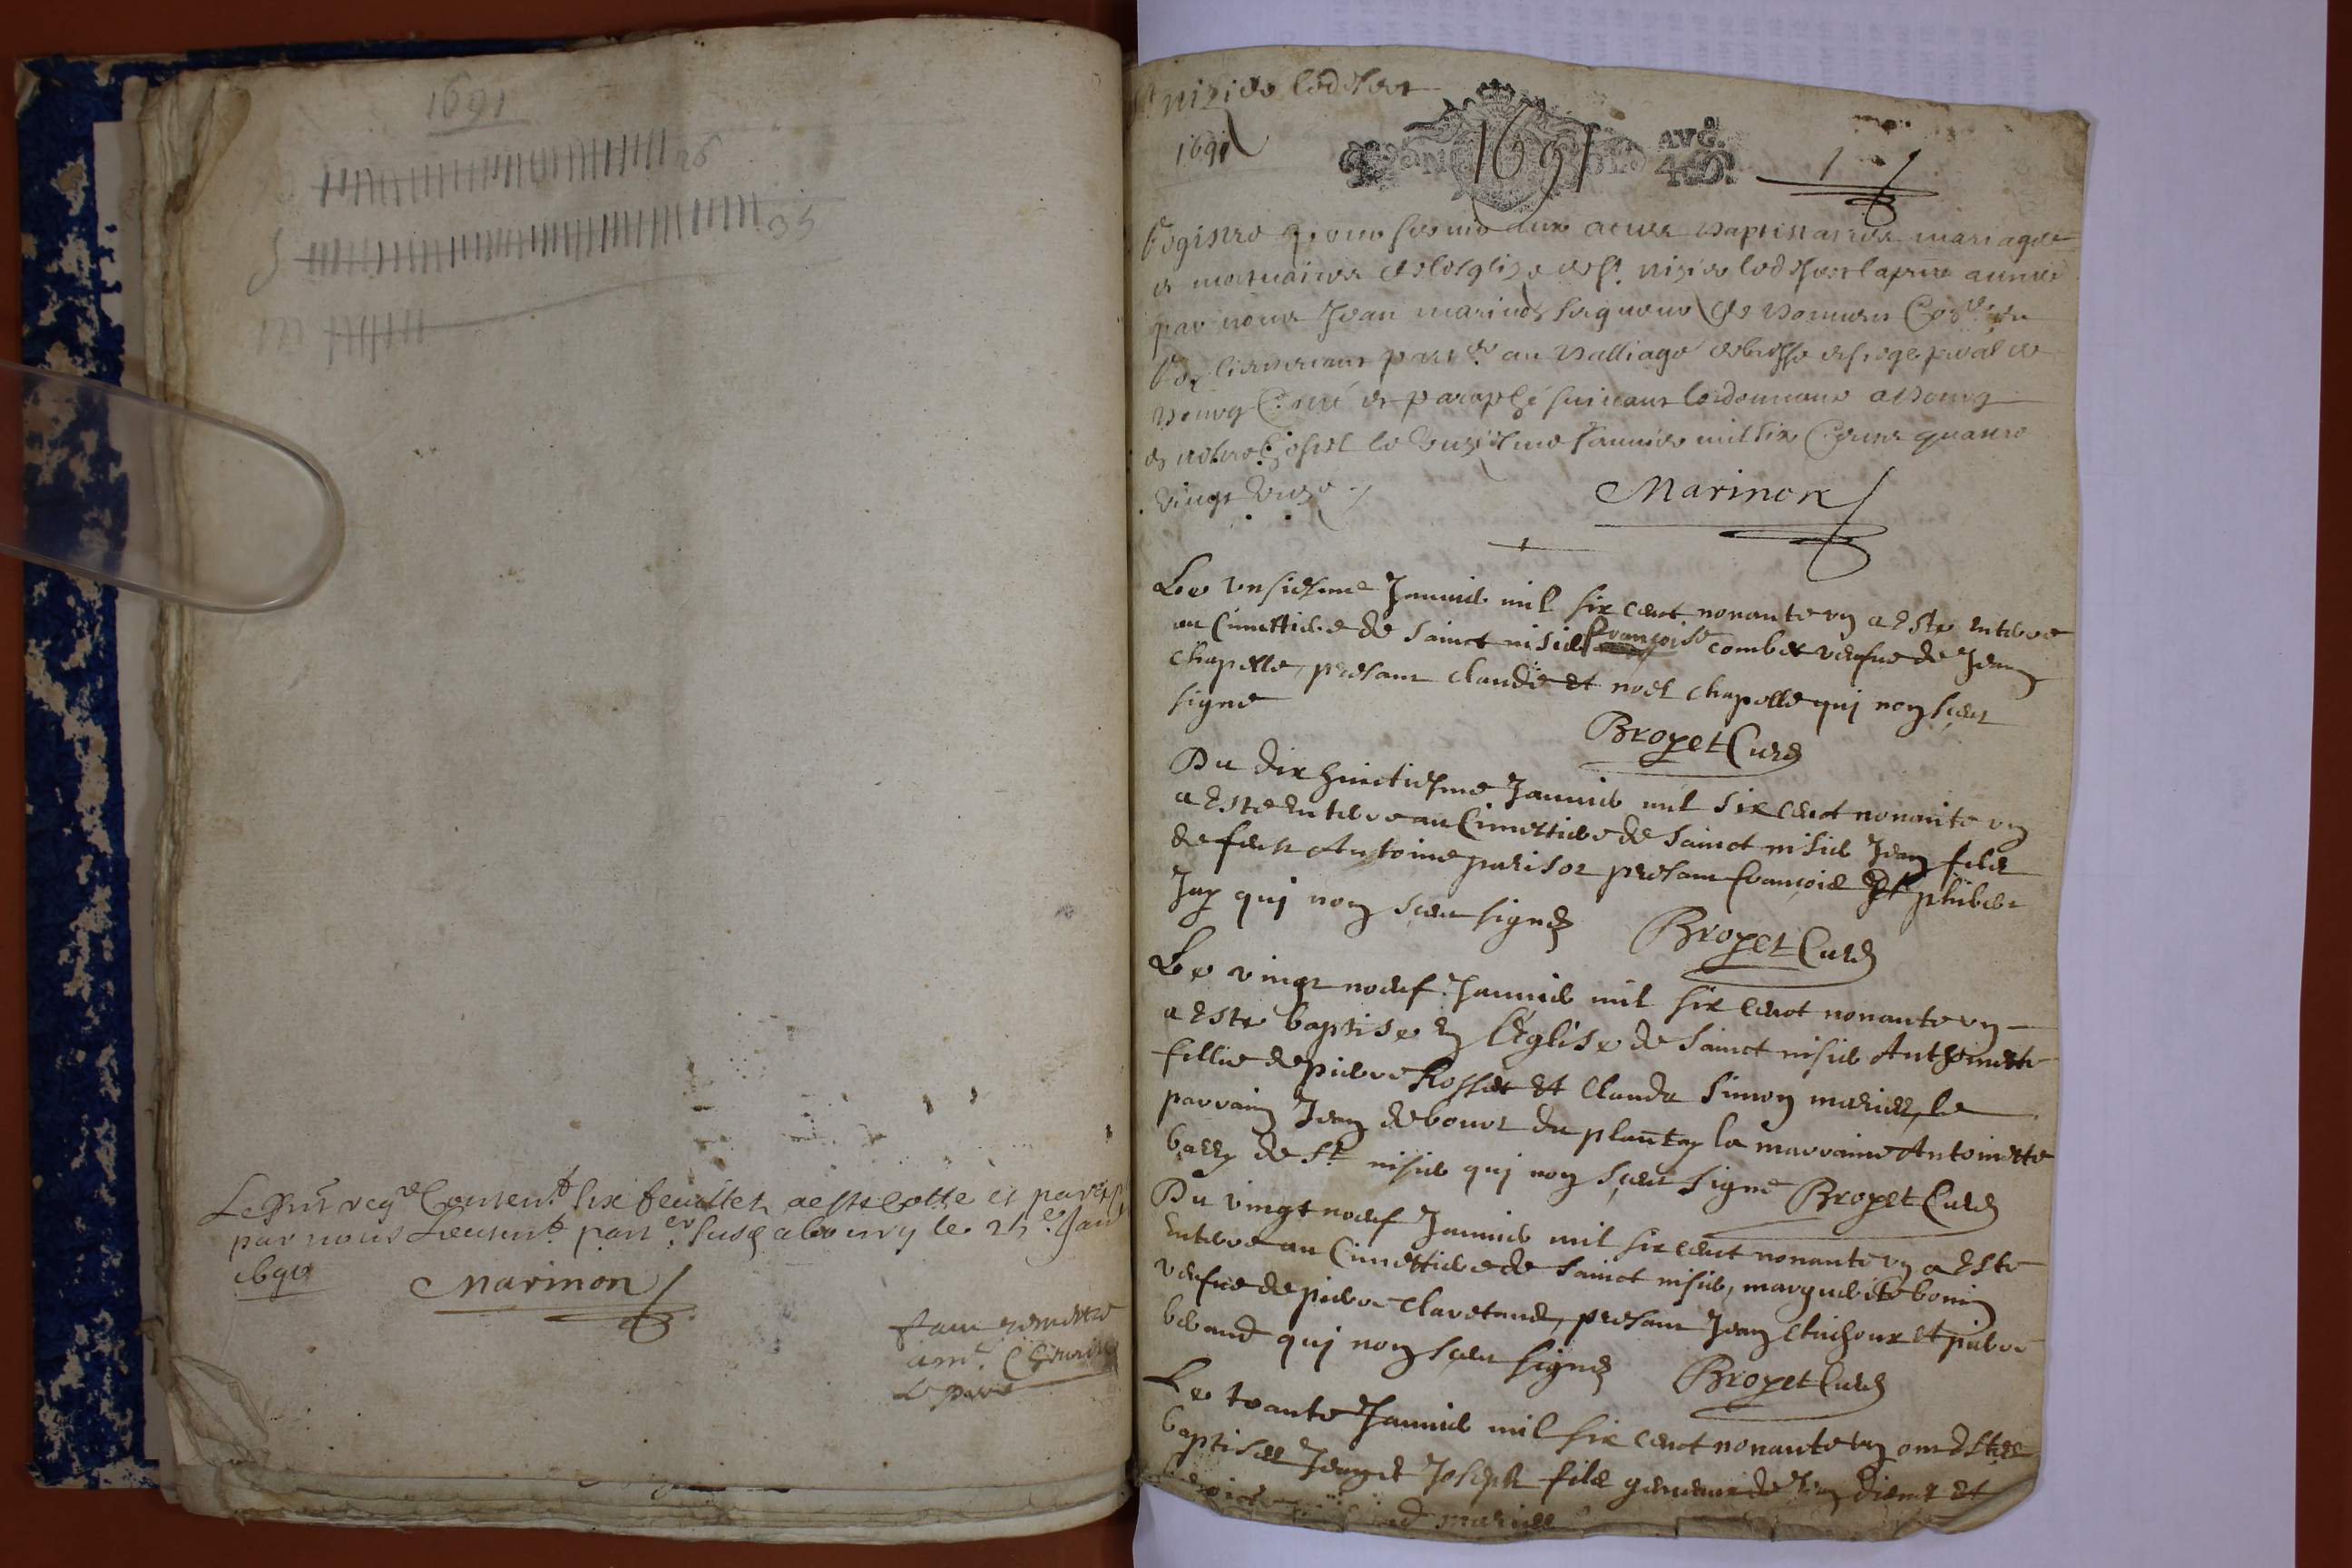 1691
26
35
Le pnt regre Content six feuillet a este cotte et paraph
par nous Lieutent parter susd a bourg le 25e Janv
1691
Marinon
faut remettre
a mr
le pere
St nizier led desert
1691
1691
AVG.
4 D.
1
Registre pour servir aux actes baptistaires mariages
et mortuaires de lesglise de st nizier led desert la pnte annee
par nous Jean marinon seigneur de Conser du
Roy lieutenant parter au balliage de bresse et siege pnal de
bourg Cotté et paraphé suivant lordonnance a bourg
en nostre hostel le unziesme Janvier mil six Cents quatre
vingt unze
Marinon
Le unsiesme Janvier mil six cent nonante un a este enterre
au Cimettiere de sainct nisier françoise combet vefue de Jean
chapelle, presant claude et noel chapelle qui non sceu
signe
Broyet Curé
Du dix huictiesme Janvier mil six cent nonante un
a este enterre au Cimettiere de sainct nisier Jean filz
de feu Antoine parisot presant françois et philiber
Jay qui non sceu signé
Broyet Curé
Le vingt noeuf Janvier mil six cent nonante un
a este baptise en L'Eglise de sainct nisier Anthoinette
fillie de pierre Rosset et Clauda simon mariez, le
parrain Jean debout du plantay la marraine Antoinette
barry de st nisier qui non sceu signe Broyet Curé
Du vingt noeuf Janvier mil six cent nonante un a este
enterre au Cimettiere de sainct nisier, marguerite bonin
vefue de pierre Clavetaud, presant Jean et pierre
beraud qui non sceu signé
Broyet Curé
Le trante Janvier mil six cent nonante un ont estez
baptisez Jean et Joseph filz gemeaux de Jean et
mariez